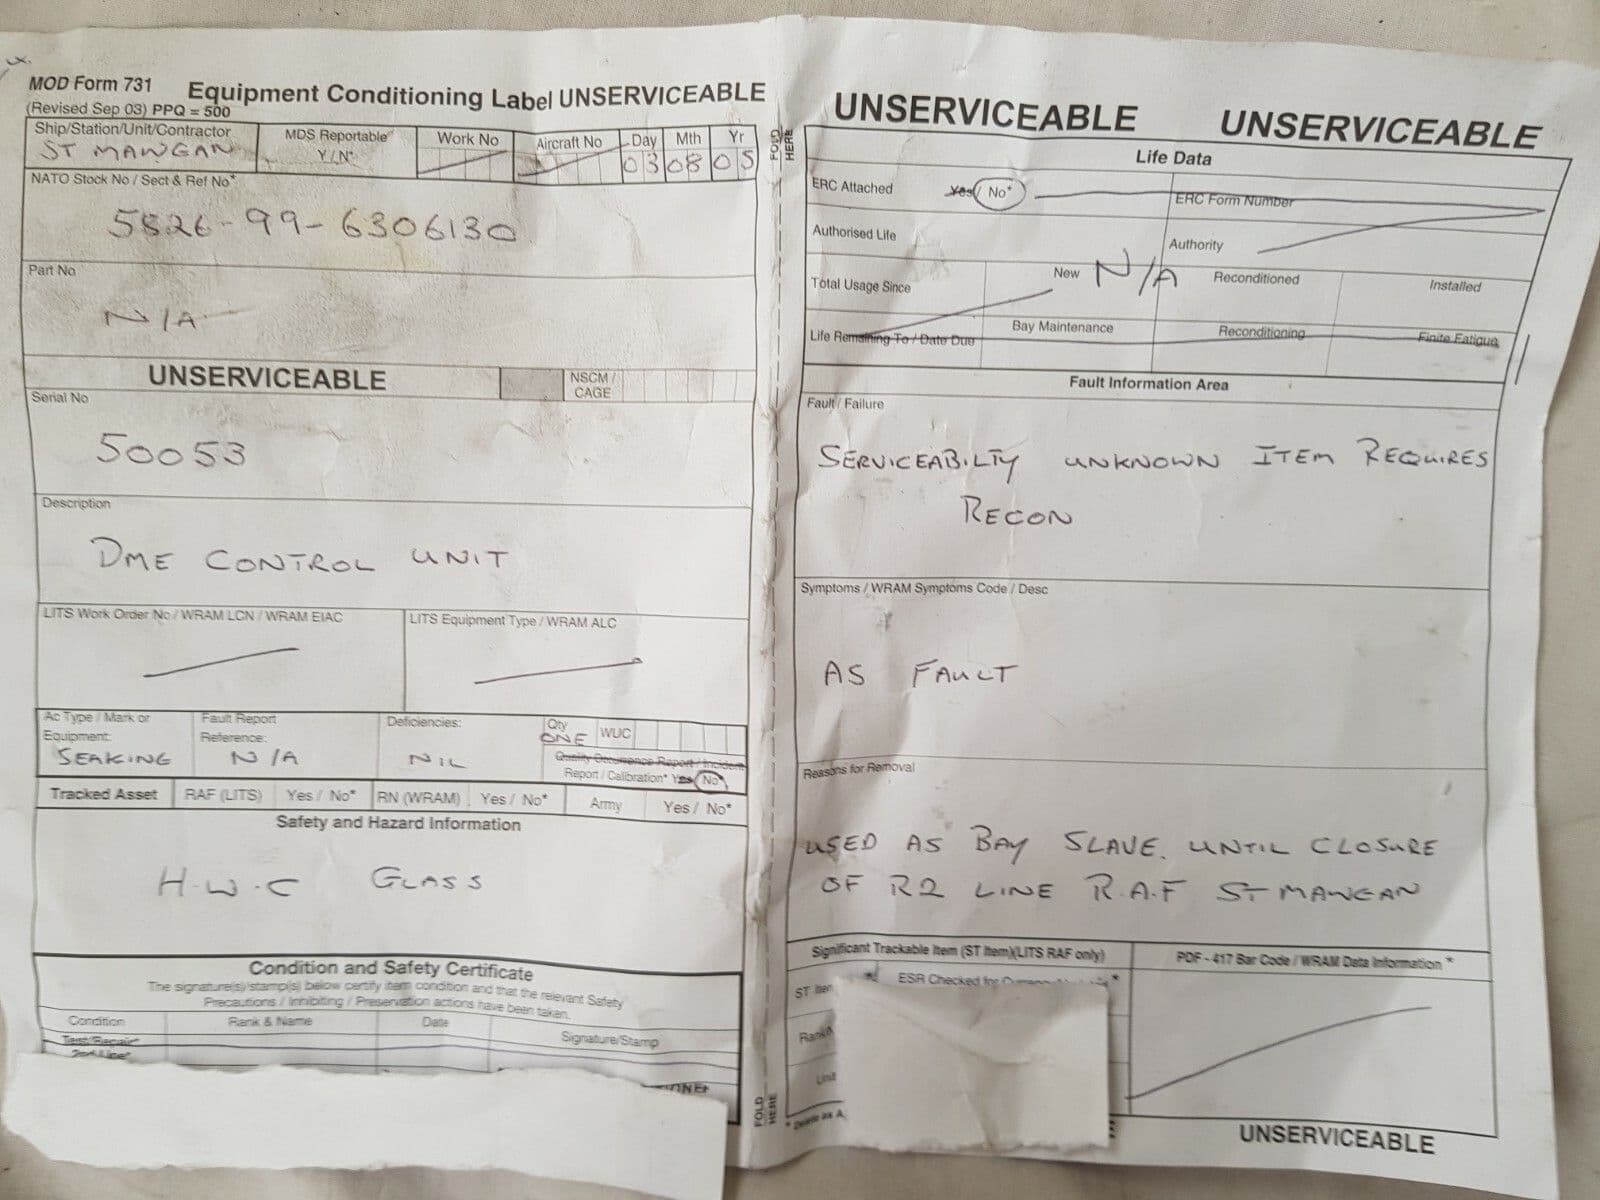 MOD Form 731 Equipment Conditioning Label UNSERVICEABLE
(Revised Sep 03) PPQ = 500
Ship/Station/Unit/Contractor
ST MAWGAN
MDS Reportable*
Y/N*
Work No
Aircraft No
Day Mth Yr
03 08 05
NATO Stock No / Sect & Ref No*
5826-99-6306130
Part No
N/A
UNSERVICEABLE
NSCM /
CAGE
Serial No
50053
Description
DME CONTROL UNIT
LITS Work Order No / WRAM LCN / WRAM EIAC
LITS Equipment Type / WRAM ALC
Ac Type / Mark or
Equipment:
SEAKING
Fault Report
Reference:
N/A
Deficiencies:
NIL
Qty
ONE
WUC
Quality Occurrence Report / Incident
Report / Calibration* Yes No*
Tracked Asset RAF (LITS) Yes / No* RN (WRAM) Yes / No* Army Yes / No*
Safety and Hazard Information
H.W.C GLASS
Condition and Safety Certificate
The signature(s)/stamp(s) below certify item condition and that the relevant Safety
Precautions / Inhibiting / Preservation actions have been taken.
Condition Rank & Name Date Signature/Stamp
Test/Repair*
2nd Line*
FOLD HERE
FOLD HERE
UNSERVICEABLE UNSERVICEABLE
Life Data
ERC Attached Yes / No* ERC Form Number
Authorised Life Authority
Total Usage Since New N/A Reconditioned Installed
Life Remaining To / Date Due Bay Maintenance Reconditioning Finite Fatigue
Fault Information Area
Fault / Failure
SERVICEABILTY UNKNOWN ITEM REQUIRES
RECON
Symptoms / WRAM Symptoms Code / Desc
AS FAULT
Reasons for Removal
USED AS BAY SLAVE. UNTIL CLOSURE
OF R2 LINE R.A.F ST MAWGAN
Significant Trackable Item (ST Item)(LITS RAF only)
PDF - 417 Bar Code / WRAM Data Information *
ST Item
ESR Checked for
Unit
* Delete as A
UNSERVICEABLE